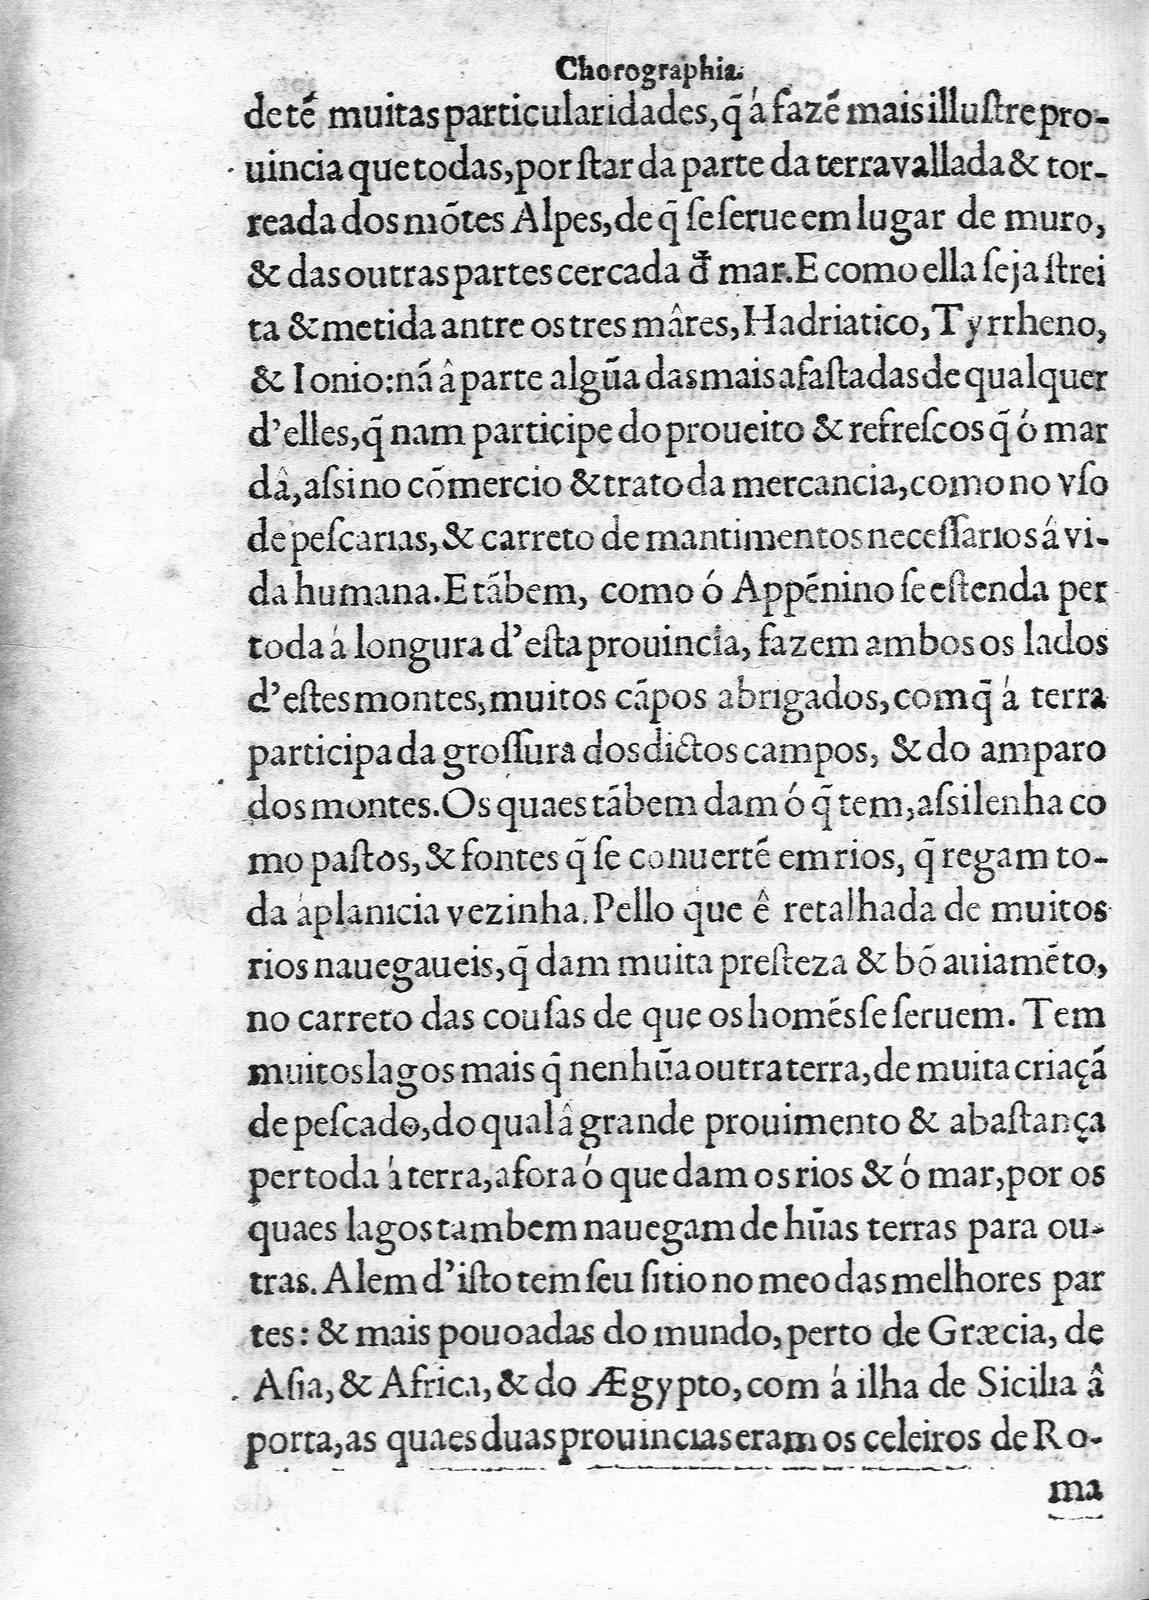 Chorographia.
de tẽ muitas particularidades, q̃ á fazẽ mais illuſtre pro-
uincia que todas, por ſtar da parte da terra vallada & tor-
reada dos mõtes Alpes, de q̃ ſe ſerue em lugar de muro,
& das outras partes cercada đ mar. E como ella ſeja ſtrei
ta & metida antre os tres mâres, Hadriatico, Tyrrheno,
& Ionio: nã â parte algũa das mais afaſtadas de qualquer
d'elles, q̃ nam participe do proueito & refreſcos q̃ ó mar
dâ, aſsi no cõmercio & trato da mercancia, como no vſo
de peſcarias, & carreto de mantimentos neceſſarios â vi-
da humana. E tãbem, como ó Appẽnino ſe eſtenda per
toda á longura d'eſta prouincia, fazem ambos os lados
d'eſtes montes, muitos cãpos abrigados, com q̃ á terra
participa da groſſura dos dictos campos, & do amparo
dos montes. Os quaes tãbem dam ó q̃ tem, aſsi lenha co
mo paſtos, & fontes q̃ ſe conuertẽ em rios, q̃ regam to-
da á planicia vezinha. Pello que ê retalhada de muitos
rios nauegaueis, q̃ dam muita preſteza & bõ auiamẽto,
no carreto das couſas de que os homẽs ſe ſeruem. Tem
muitos lagos mais q̃ nenhũa outra terra, de muita criaçã
de peſcado, do qual â grande prouimento & abaſtança
per toda á terra, afora ó que dam os rios & ó mar, por os
quaes lagos tambem nauegam de hũas terras para ou-
tras. Alem d'iſto tem ſeu ſitio no meo das melhores par
tes: & mais pouoadas do mundo, perto de Græcia, de
Aſia, & Africa, & do Ægypto, com á ilha de Sicilia â
porta, as quaes duas prouincias eram os celeiros de Ro-
ma